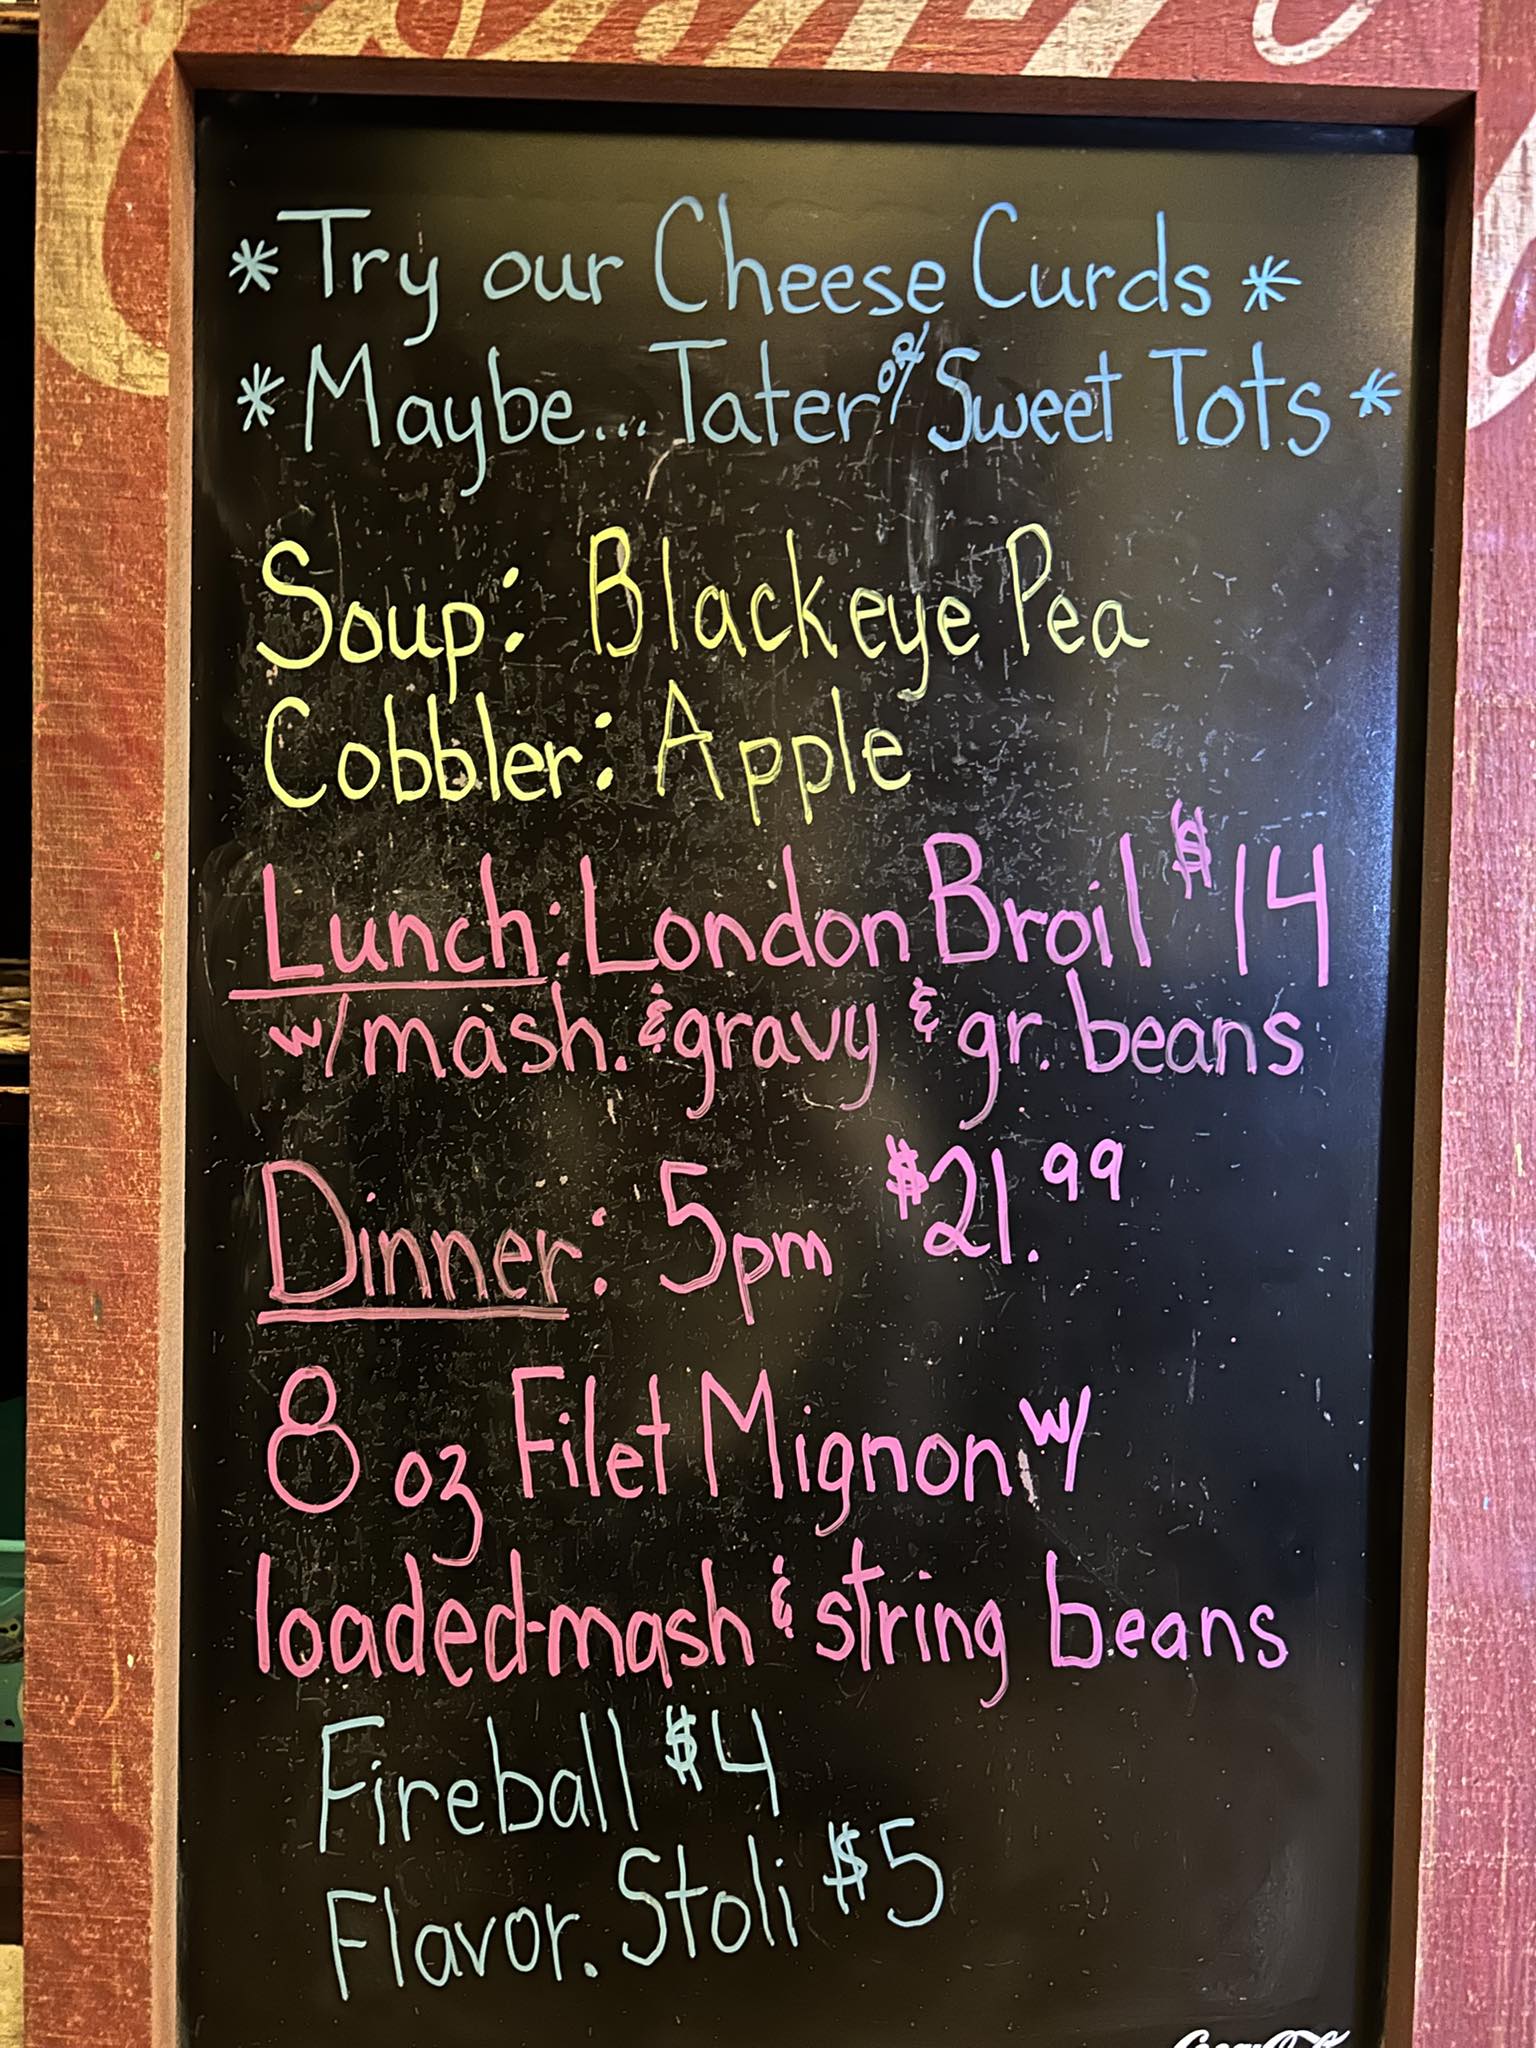 *Try our Cheese Curds*
*Maybe... Tater or Sweet Tots*
Soup: Blackeye Pea
Cobbler: Apple
Lunch: London Broil $14
w/mash. & gravy & gr. beans
Dinner: 5pm $21.99
8 oz Filet Mignon w/
loaded-mash & string beans
Fireball $4
Flavor. Stoli $5